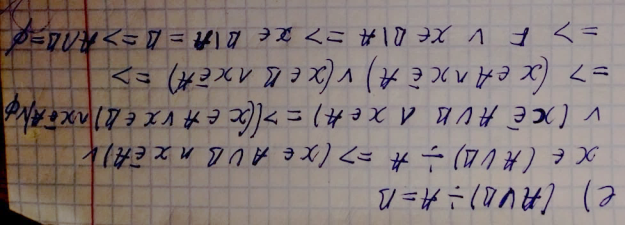 e) (A∪B) ÷ A = B
x ∈ (A∪B) ÷ A => (x ∈ A∪B ∧ x ∈̄ A) ∨
∨ (x ∈̄ A∪B ∧ x ∈ A) => ((x ∈ A ∨ x ∈ B) ∧ x ∈̄ A) ∨ ∅
=> (x ∈ A ∧ x ∈̄ A) ∨ (x ∈ B ∧ x ∈̄ A) =>
=> F ∨ x ∈ B \ A => x ∈ B \ A = B => A∩B = ∅